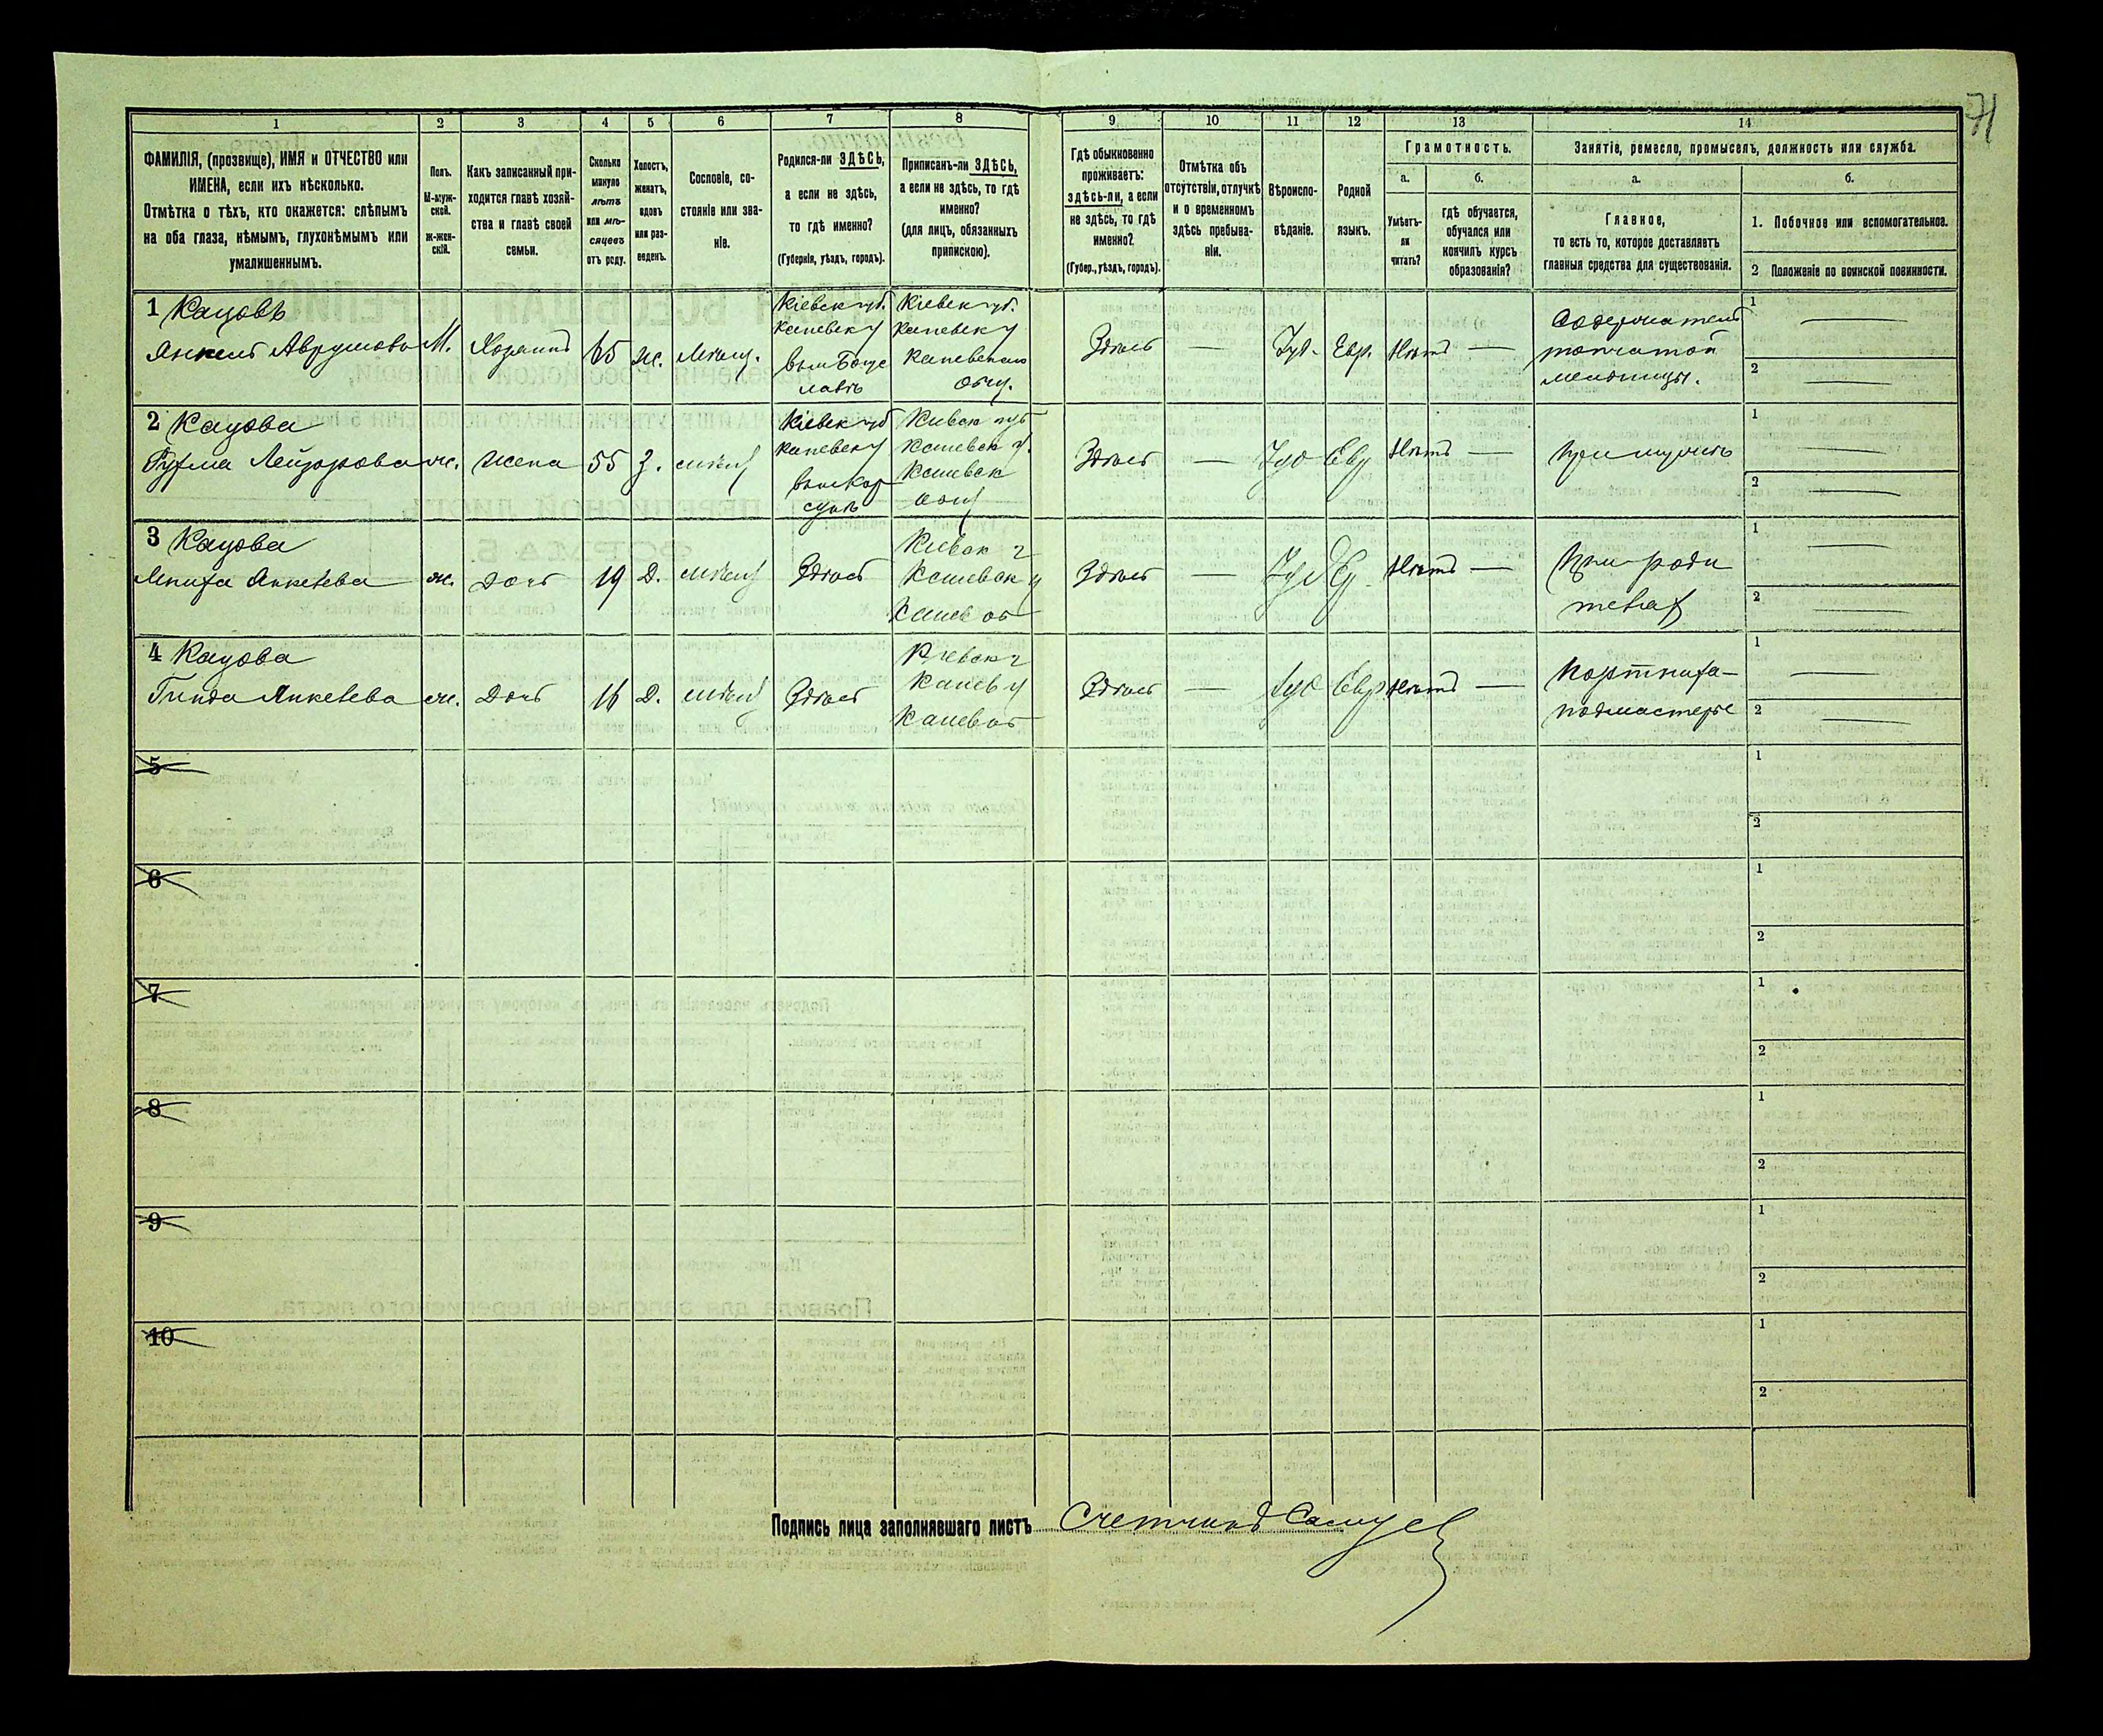 71
1 2 3 4 5 6 7 8 9 10 11 12 13 14
ФАМИЛІЯ, (прозвище), ИМЯ и ОТЧЕСТВО или
ИМЕНА, если ихъ нѣсколько.
Отмѣтка о тѣхъ, кто окажется: слѣпымъ
на оба глаза, нѣмымъ, глухонѣмымъ или
умалишеннымъ.
Полъ.
М-муж-
ской.
Ж-жен-
скій.
Какъ записанный при-
ходится главѣ хозяй-
ства и главѣ своей
семьи.
Сколько
минуло
лѣтъ
или мѣ-
сяцевъ
отъ роду.
Холостъ,
женатъ,
вдовъ
или раз-
веденъ.
Сословіе, со-
стояніе или зва-
ніе.
Родился-ли ЗДѢСЬ,
а если не здѣсь,
то гдѣ именно?
(Губернія, уѣздъ, городъ).
Приписанъ-ли ЗДѢСЬ,
а если не здѣсь, то гдѣ
именно?
(для лицъ, обязанныхъ
припискою).
Гдѣ обыкновенно
проживаетъ:
здѣсь-ли, а если
не здѣсь, то гдѣ
именно?
(Губер., уѣздъ, городъ).
Отмѣтка объ
отсутствіи, отлучкѣ
и о временномъ
здѣсь пребыва-
ніи.
Вѣроиспо-
вѣданіе.
Родной
языкъ.
Грамотность.
а.
Умѣетъ-
ли
читать?
б.
гдѣ обучается,
обучался или
кончилъ курсъ
образованія?
Занятіе, ремесло, промыселъ, должность или служба.
а.
Главное,
то есть то, которое доставляетъ
главныя средства для существованія.
б.
1. Побочное или вспомогательное.
2 Положеніе по воинской повинности.
1 Кацовъ
Янкель Аврумовъ
М.
Хозяинъ
65
ж.
мѣщ.
Кіевск губ.
Каневск у
Богус
лавъ
Кіевск губ.
Каневск у
Каневскаго
общ.
Здѣсь
—
Іуд.
Евр.
Нѣтъ
—
Содержатель
топчатой
мельницы.
1 —
2 —
2 Кацова
Лейзорова
ж.
жена
55
З.
мѣщ
Кіевск губ
Каневск у
Кор
сунь
Киевск губ
Каневск у.
Каневск
общ
Здѣсь
—
Іуд
Евр
Нѣтъ
—
при мужѣ
1 —
2 —
3 Кацова
Янкелева
ж.
дочь
19
Д.
мѣщ
Здѣсь
Киевск г
Каневск у
Канев об
Здѣсь
—
Іуд
Ев
Нѣтъ
—
При роди
телях
1 —
2 —
4 Кацова
Гинда Янкелева
ж.
Дочь
16
Д.
мѣщ
Здѣсь
Киевск г
Канев у
Канев об
Здѣсь
—
Іуд
Евр
Нѣтъ
—
Портниха-
подмастерье
1 —
2 —
5
1
2
6
1
2
7
1
2
8
1
2
9
1
2
10
1
2
Подпись лица заполнявшаго листъ Счетчикъ